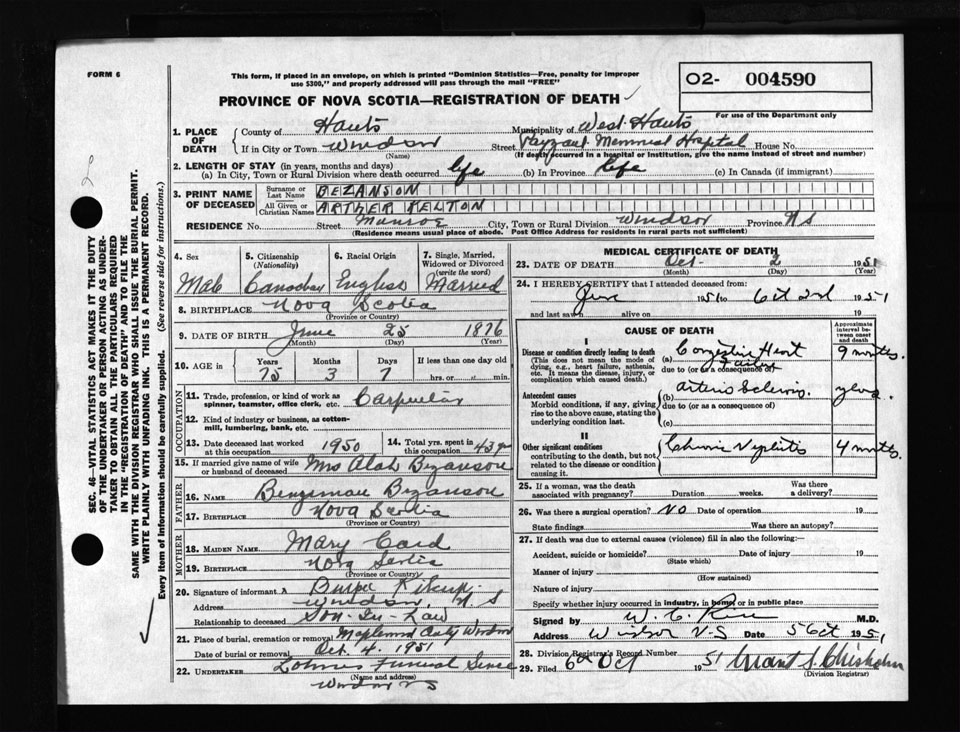 FORM 6
This form, if placed in an envelope, on which is printed "Dominion Statistics—Free, penalty for improper
use $300," and properly addressed will pass through the mail "FREE"
O2- 004590
For use of the Department only
PROVINCE OF NOVA SCOTIA—REGISTRATION OF DEATH
1. PLACE OF DEATH
County of Hants Municipality of West Hants
If in City or Town Windsor Street Payzant Memorial Hospital House No.
(Name) (If death occurred in a hospital or institution, give the name instead of street and number)
2. LENGTH OF STAY (in years, months and days)
(a) In City, Town or Rural Division where death occurred life (b) In Province life (c) In Canada (if immigrant)
3. PRINT NAME OF DECEASED
Surname or Last Name BEZANSON
All Given or Christian Names ARTHER KELTON
RESIDENCE No. Street Munroe City, Town or Rural Division Windsor Province NS
(Residence means usual place of abode. Post Office Address for residents in rural parts not sufficient)
4. Sex 5. Citizenship (Nationality) 6. Racial Origin 7. Single, Married, Widowed or Divorced (write the word)
Male Canadian English Married
8. BIRTHPLACE Nova Scotia
(Province or Country)
9. DATE OF BIRTH June 25 1876
(Month) (Day) (Year)
10. AGE in Years Months Days If less than one day old
75 3 7 hrs. or min.
OCCUPATION
11. Trade, profession, or kind of work as spinner, teamster, office clerk, etc. Carpenter
12. Kind of industry or business, as cotton-mill, lumbering, bank, etc.
13. Date deceased last worked at this occupation 1950 14. Total yrs. spent in this occupation 43 yr
15. If married give name of wife or husband of deceased Mrs Bezanson
FATHER
16. NAME Bezanson
17. BIRTHPLACE Nova Scotia
(Province or Country)
MOTHER
18. MAIDEN NAME Mary Card
19. BIRTHPLACE Nova Scotia
(Province or Country)
20. Signature of informant Burpee
Address Windsor, N S
Relationship to deceased Son-In-Law
21. Place of burial, cremation or removal Maplewood Windsor
Date of burial or removal Oct. 4. 1951
22. UNDERTAKER Funeral Service
(Name and address)
Windsor NS
MEDICAL CERTIFICATE OF DEATH
23. DATE OF DEATH Oct. 2 1951
(Month) (Day) (Year)
24. I HEREBY CERTIFY that I attended deceased from:
1951 to Oct 2nd 1951
and last saw alive on 19
CAUSE OF DEATH
Approximate interval between onset and death
I
Disease or condition directly leading to death
(This does not mean the mode of dying, e.g., heart failure, asthenia, etc. It means the disease, injury, or complication which caused death.)
(a) Congestive Heart Failure 9 months.
due to (or as a consequence of)
Antecedent causes
Morbid conditions, if any, giving rise to the above cause, stating the underlying condition last.
(b) years.
due to (or as a consequence of)
(c)
II
Other significant conditions
contributing to the death, but not related to the disease or condition causing it.
Chronic Nephritis 4 months.
25. If a woman, was the death associated with pregnancy? Duration weeks. Was there a delivery?
26. Was there a surgical operation? NO Date of operation 19
State findings Was there an autopsy?
27. If death was due to external causes (violence) fill in also the following:
Accident, suicide or homicide? Date of injury 19
(State which)
Manner of injury
(How sustained)
Nature of injury
Specify whether injury occurred in industry, in home, or in public place
Signed by M.D.
Address Windsor N-S Date 5 Oct 1951
28. Division Registrar's Record Number
29. Filed 6 Oct 1951 Grant S. Chisholm
(Division Registrar)
SEC. 46—VITAL STATISTICS ACT MAKES IT THE DUTY
OF THE UNDERTAKER OR PERSON ACTING AS UNDER-
TAKER TO OBTAIN ALL THE PARTICULARS REQUIRED
IN THE "REGISTRATION OF DEATH" AND TO FILE THE
SAME WITH THE DIVISION REGISTRAR WHO SHALL ISSUE THE BURIAL PERMIT.
WRITE PLAINLY WITH UNFADING INK. THIS IS A PERMANENT RECORD.
Every item of information should be carefully supplied. (See reverse side for instructions.)